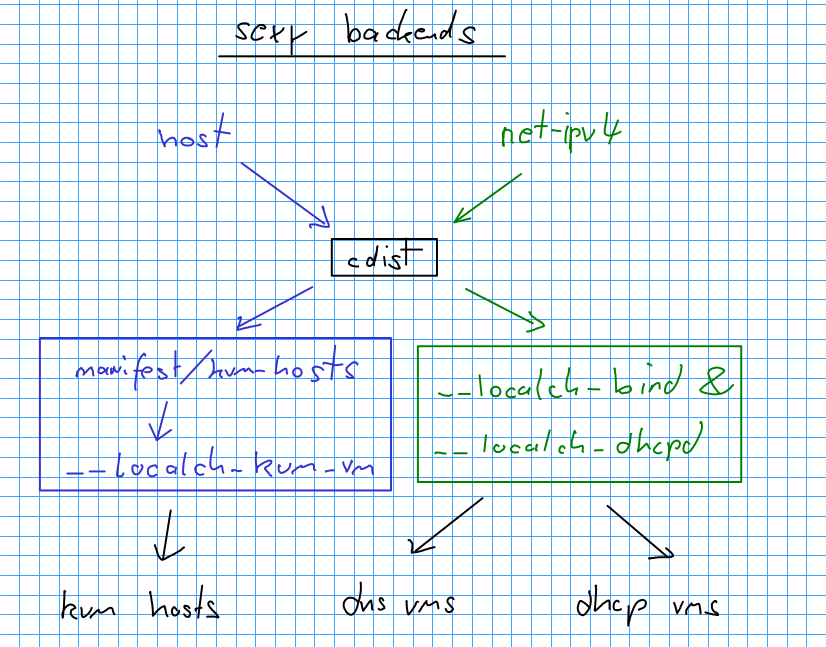 sexy backends
host
net-ipv4
cdist
manifest/kvm-hosts
__localch_kvm_vm
__localch_bind &
__localch_dhcpd
kvm hosts
dns vms
dhcp vms